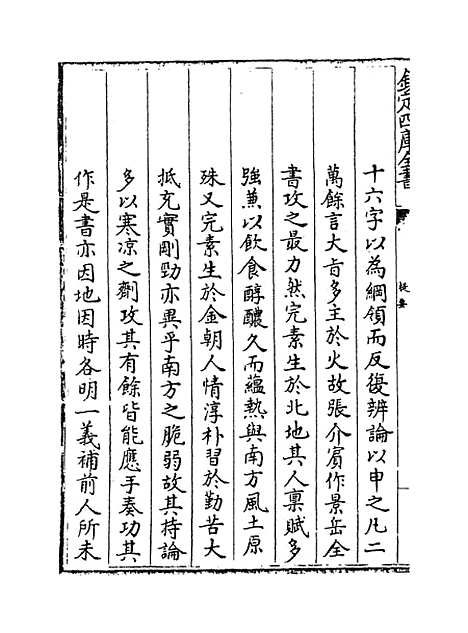 欽定四庫全書
提要
十六字以為綱領而反復辨論以申之凡二
萬餘言大旨多主於火故張介賔作景岳全
書攻之最力然完素生於北地其人禀賦多
強兼以飲食醇醲久而蘊熱與南方風土原
殊又完素生於金朝人情淳朴習於勤苦大
抵充實剛勁亦異乎南方之脆弱故其持論
多以寒凉之劑攻其有餘皆能應手奏功其
作是書亦因地因時各明一義補前人所未